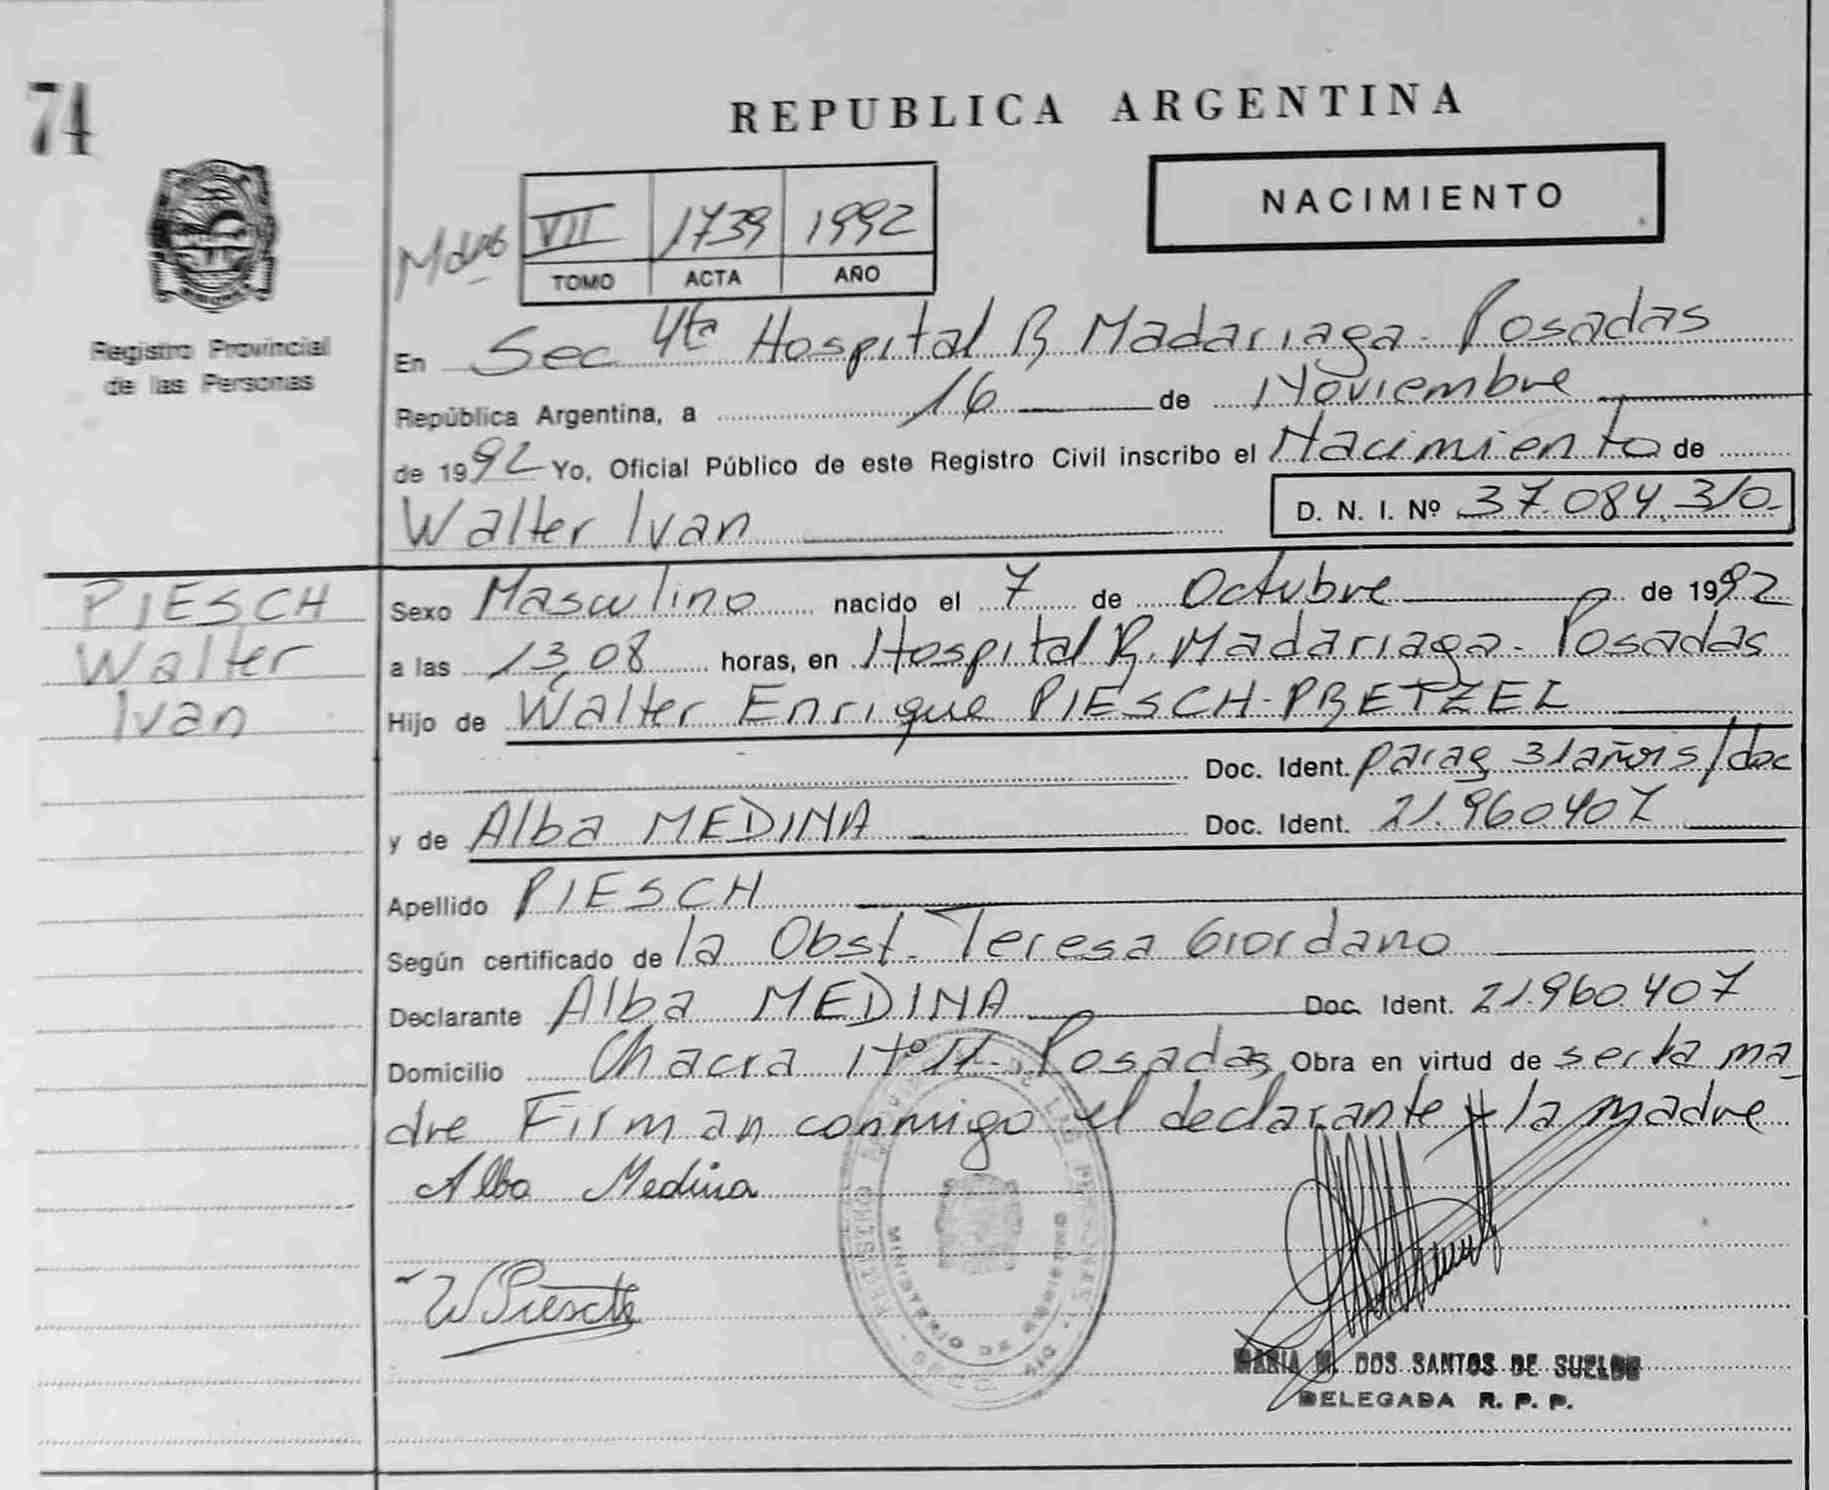 74
REPUBLICA ARGENTINA
NACIMIENTO
VII 1739 1992
TOMO ACTA AÑO
Registro Provincial
de las Personas
En Sec 4ta Hospital R Madariaga - Posadas
República Argentina, a 16 de Noviembre
de 1992 Yo, Oficial Público de este Registro Civil inscribo el Nacimiento de
Walter Ivan D. N. I. Nº 37.084.310-
PIESCH
Walter
Ivan
Sexo Masculino nacido el 7 de Octubre de 1992
a las 13,08 horas, en Hospital R. Madariaga - Posadas
Hijo de Walter Enrique PIESCH-PRETZEL
Doc. Ident. parag 31años/doc
y de Alba MEDINA Doc. Ident. 21.960407
Apellido PIESCH
Según certificado de la Obst. Teresa Giordano
Declarante Alba MEDINA Doc. Ident. 21.960.407
Domicilio Chacra Nº 11 - Posadas Obra en virtud de ser la ma
dre Firman conmigo el declarante y la madre
Alba Medina
W Piesch
MARIA M. DOS SANTOS DE SUELDO
DELEGADA R. P. P.